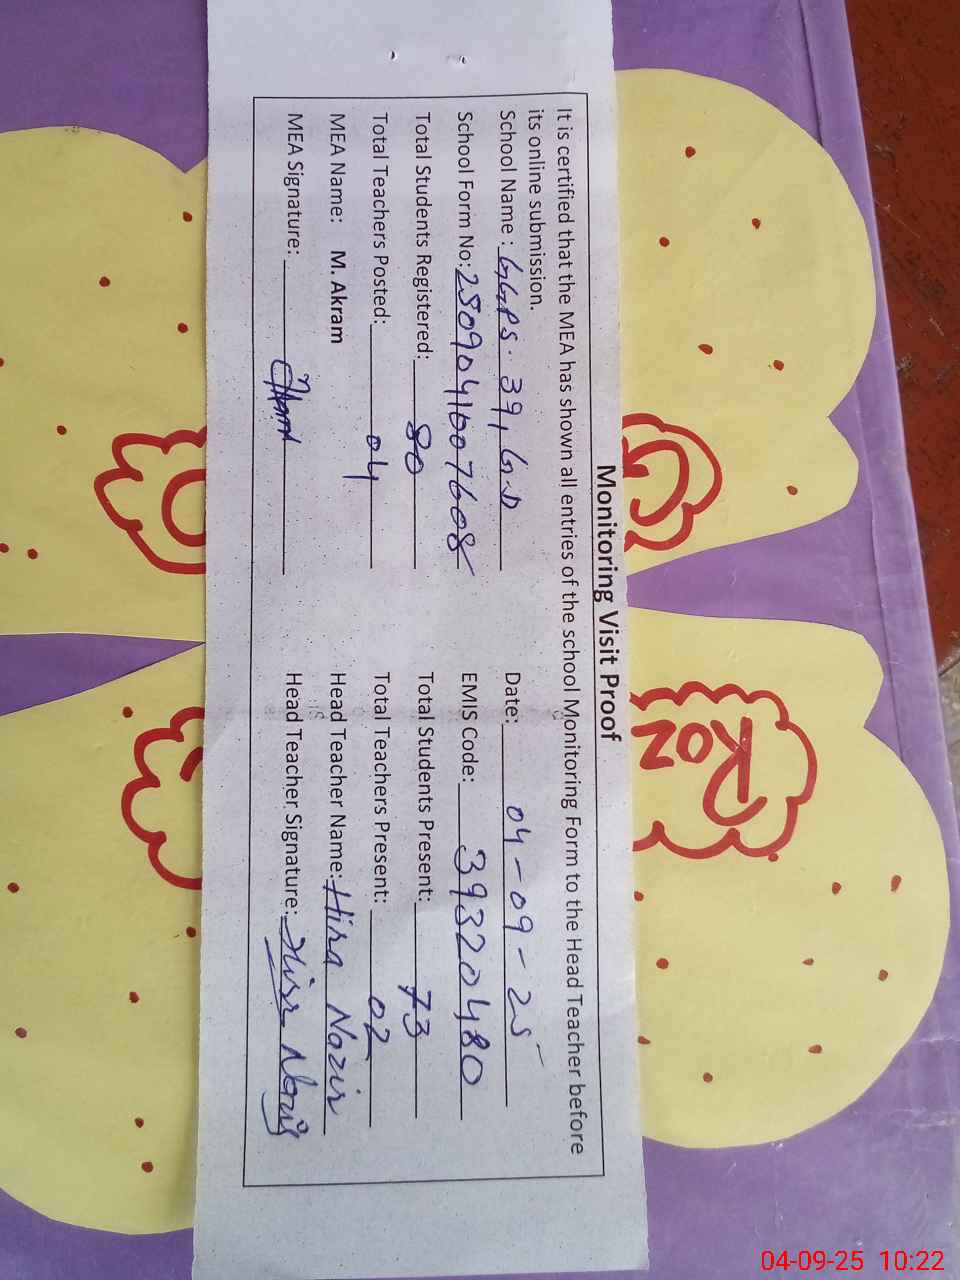 Monitoring Visit Proof
It is certified that the MEA has shown all entries of the school Monitoring Form to the Head Teacher before
its online submission.
School Name : GGPS. 39, G.D Date: 04-09-25
School Form No: 25090416007608 EMIS Code: 39320480
Total Students Registered: 80 Total Students Present: 73
Total Teachers Posted: 04 Total Teachers Present: 02
MEA Name: M. Akram Head Teacher Name: Hira Nazir
MEA Signature: Head Teacher Signature: Hira Nazir
04-09-25 10:22